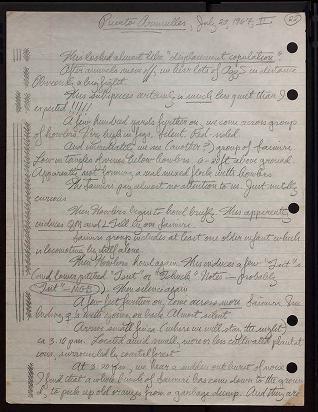 Puerto Armuelles, July 23, 1967, II
This looked almost like "displacement copulation"
After animals move off, we hear lots of in distance
Obviously a big fight.
This surprises certainly much less quiet than I
expected !!!!!
A few hundred yards further on, we come across group
of howlers. high in trees. Silent. Red-sided.
And immediately we see (another?) group of Saimiri
Low in tangles of vines below howlers. above ground.
Apparently not forming a real mixed flock with howlers
The Saimiri pay almost no attention to us. Just mildly
curious
Then Howlers begin to howl briefly. This apparently
induces
Saimiri group includes at least one older infant which
is locomoting by itself alone.
Then Howlers howl again. This induces a few "Twit" s
(and lower pitched "Tsut" or "Notes — probably
"Twit" — ). Then silence again
A few feet further on, come across more Saimiri. One
on back. Almost silent
Arrive small (where we will stay the night)
ca 3:10 pm. Located amid small, more or less cultivated plant at
cove, surrounded by coastal forest
At 5:20 pm, we hear a sudden out burst of noise
I find that a whole bunch of Saimiri has come down to the ground
to pick up old oranges from a garbage dump. And they are